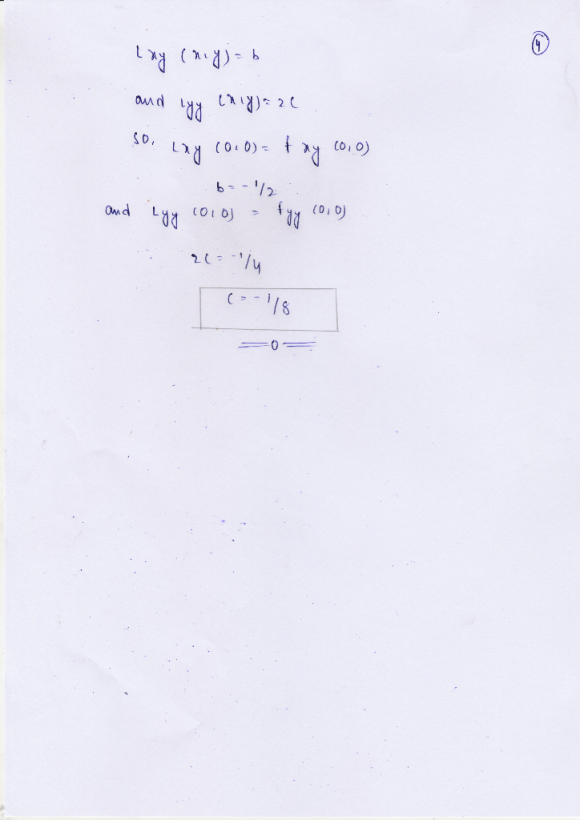 4
Lxy (x,y) = b
and Lyy (x,y) = 2c
so, Lxy (0,0) = fxy (0,0)
b = -1/2
and Lyy (0,0) = fyy (0,0)
2c = -1/4
c = -1/8